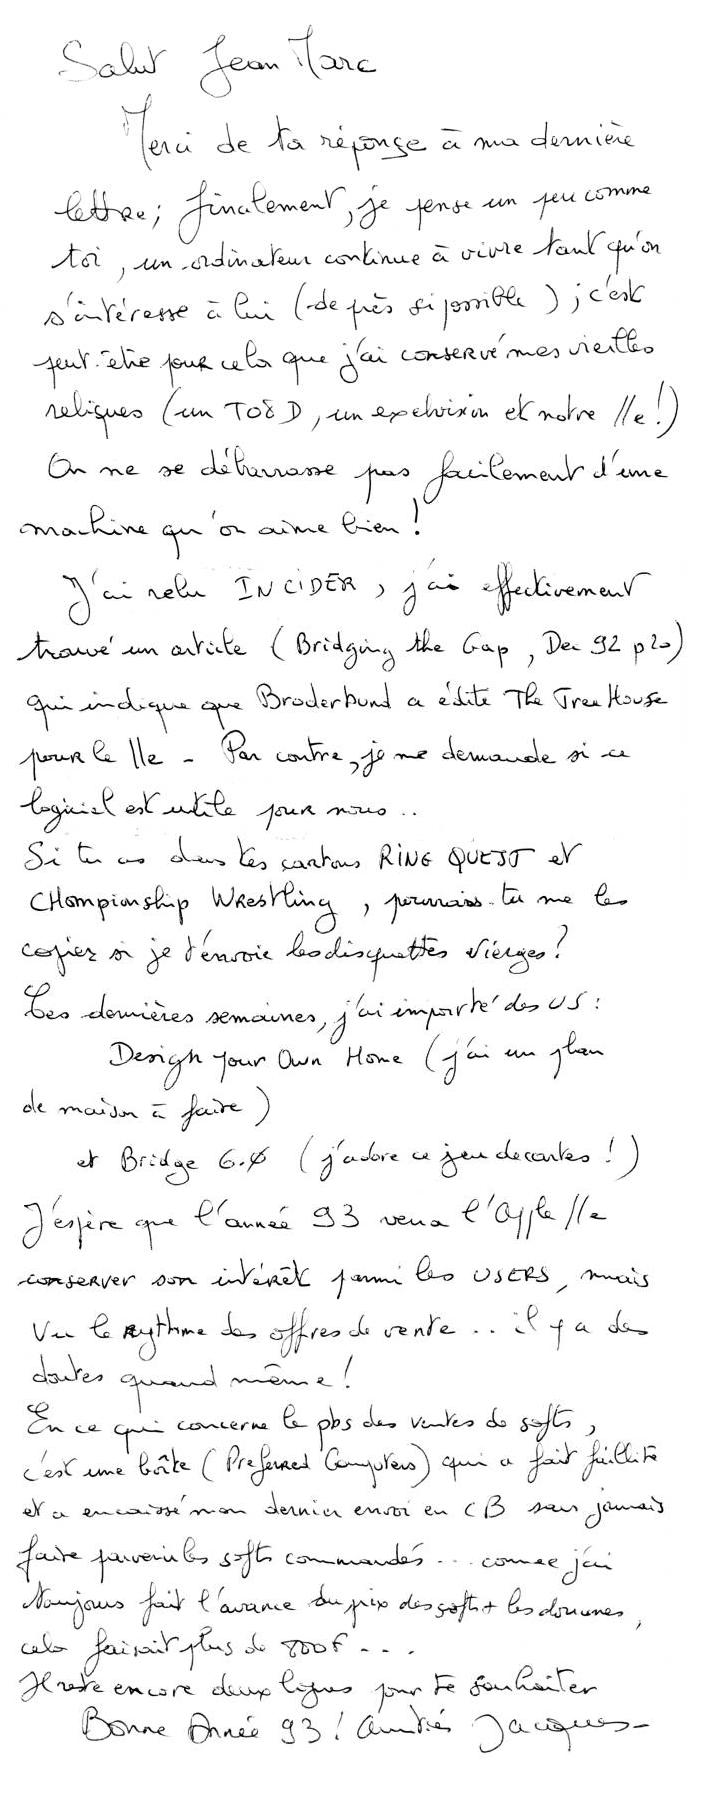 Salut Jean Marc
Merci de ta réponse à ma dernière
lettre; finalement, je pense un peu comme
toi, un ordinateur continue à vivre tant qu'on
s'intéresse à lui (de près si possible) ; c'est
peut-être pour cela que j'ai conservé mes vieilles
reliques (un TO8 D, un exelvision et notre //e!)
On ne se débarrasse pas facilement d'une
machine qu'on aime bien !
J'ai relu INCIDER, j'ai effectivement
trouvé un article (Bridging the Gap, Dec 92 p20)
qui indique que Broderbund a édité The Tree House
pour le //e - Par contre, je me demande si ce
logiciel est utile pour nous..
Si tu as dans tes cartons RING QUEST et
CHampionship Wrestling, pourrais-tu me les
copier si je t'envoie les disquettes vierges ?
Ces dernières semaines, j'ai importé des US :
Design your Own Home (j'ai un plan
de maison à faire)
et Bridge 6.0 (j'adore ce jeu de cartes !)
J'espère que l'année 93 verra l'Apple //e
conserver son intérêt parmi les USERS, mais
Vu le rythme des offres de vente... il y a des
doutes quand même !
En ce qui concerne le pbs des ventes de softs,
c'est une boîte (Preferred Computers) qui a fait faillite
et a encaissé mon dernier envoi en CB sans jamais
faire parvenir les softs commandés... comme j'ai
toujours fait l'avance du prix des softs + les douanes,
cela faisait plus de 800F...
Il reste encore deux lignes pour te souhaiter
Bonne Année 93 ! Amitiés Jacques-